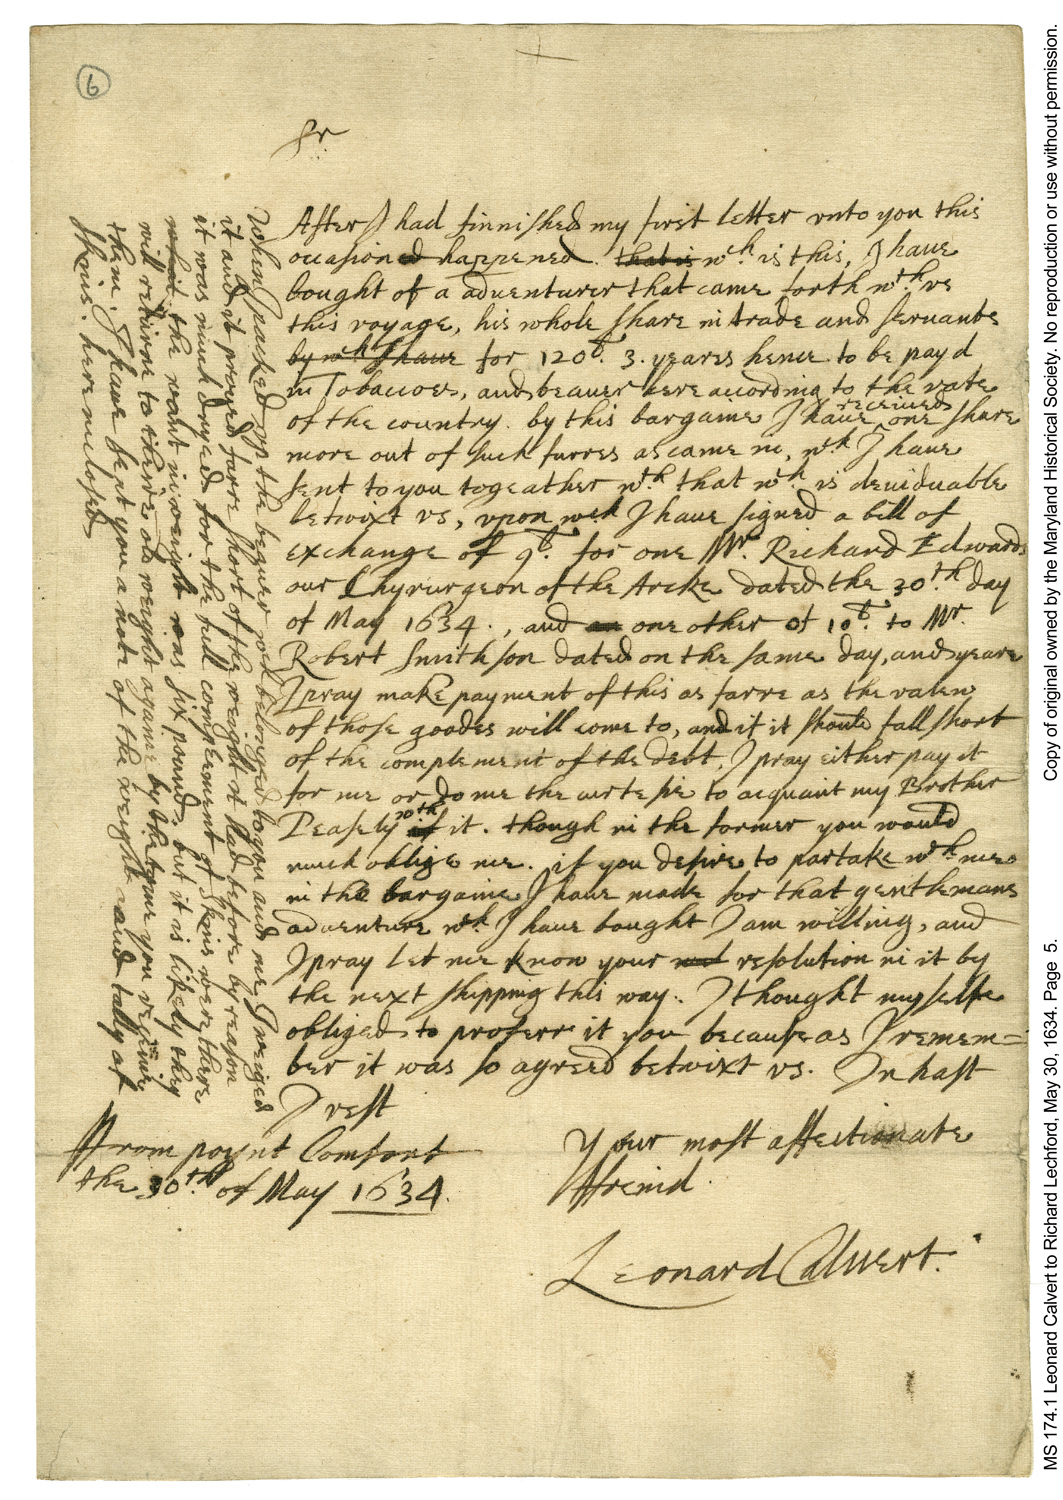 6
Sr
After I had finnished my first letter vnto you this
occasion happened. that is wch. is this, I haue
bought of a aduenturer that came forth wth. vs
this voyage, his whole share in trade and seruants
by wch I haue for 120l. 3. yeares hence to be payd
in Tobaccoes, and beauer here according to the rate
of the country. by this bargaine I haue receiued one share
more out of such furres as came in, wch I haue
sent to you togeather wth. that wch. is deuiduable
betwixt vs, vpon wch I haue signed a bill of
exchange of 9l. for one Mr. Richard Edwards
our Chyrurgeon of the Arcke dated the 30th day
of May 1634., and an one other of 10l. to Mr.
Robert Smithson dated on the same day, and yeare
I pray make payment of this as farre as the valew
of those goodes will come to, and if it should fall short
of the complement of the debt, I pray either pay it
for me or do me the curtesie to acquaint my Brother
Peasely of it. though in the former you would
much oblige me. if you desire to partake wth. mee
in the bargaine I haue made for that gentlemans
aduenture wch I haue bought I am willing, and
I pray let me know your resolution in it by
the next shipping this way. I thought my selfe
obliged to proferr it you because as I remem=
ber it was so agreed betwixt vs. In hast
I rest
Your most affectionate
ffreind.
Leonard Caluert.
ffrom poynt Comfort
the 30th. of May 1634.
When I packed vp the beauer wch belonged to you and me I weiged
it and it proued farre short of the weaight it had before by reason
it was much dryed for the full compleement of skins were there
the want in weight was six pound. but it is likely they
will returne to theire old weight againe by the time you receiue
them. I haue sent you a note of the weight and tally of
skins. here inclosed
Copy of original owned by the Maryland Historical Society. No reproduction or use without permission.
MS 174.1 Leonard Calvert to Richard Lechford, May 30, 1634. Page 5.